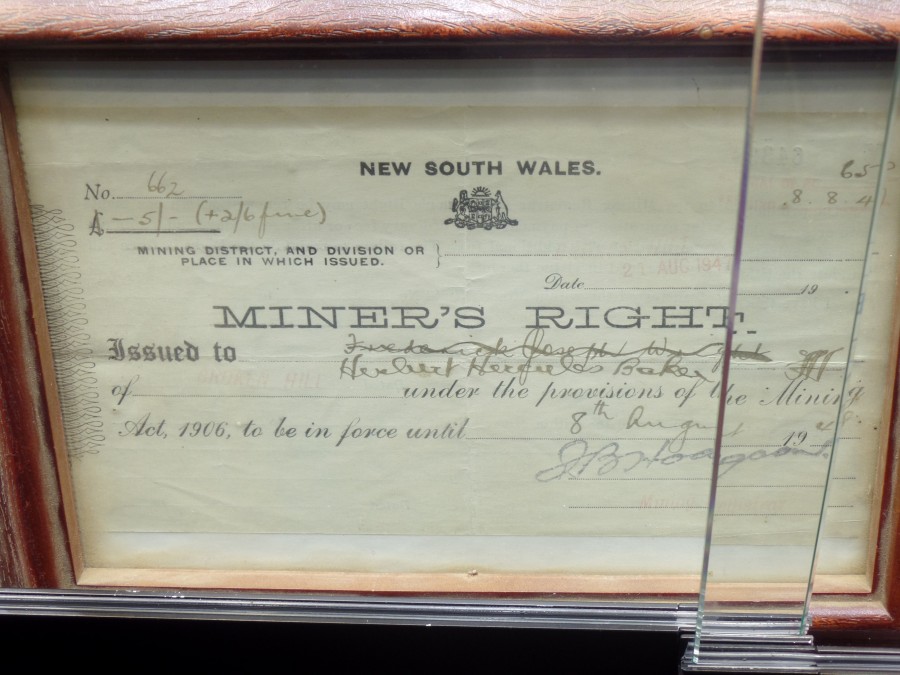 NEW SOUTH WALES.
No. 662
£ -5/- (+2/6 fine)
8.8.4
MINING DISTRICT, AND DIVISION OR
PLACE IN WHICH ISSUED.
21 AUG 194
Date 19
MINER'S RIGHT.
Issued to Frederick Joseph Wright
Herbert Hercules Baker
of BROKEN HILL under the provisions of the Mining
Act, 1906, to be in force until 8th August 19